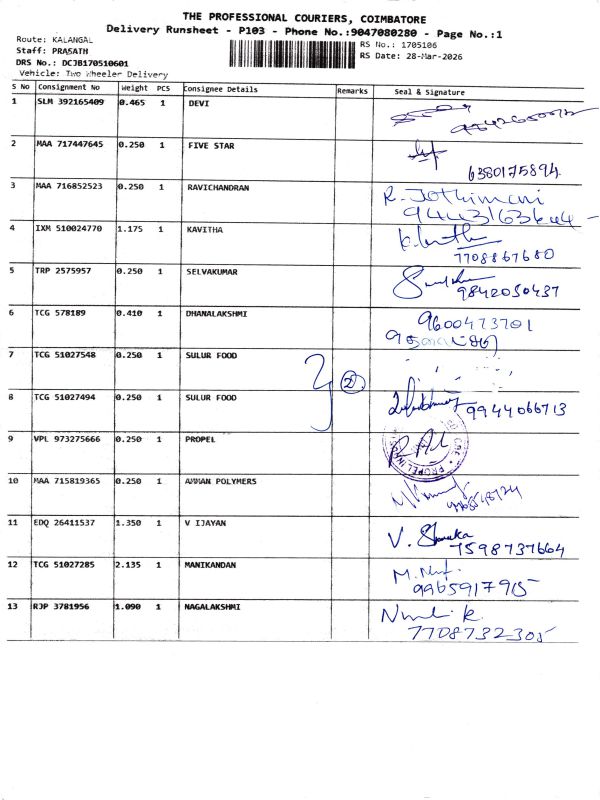 THE PROFESSIONAL COURIERS, COIMBATORE
Delivery Runsheet - P103 - Phone No.:9047080280 - Page No.:1
Route: KALANGAL
RS No.: 1705106
Staff: PRASATH
RS Date: 28-Mar-2026
DRS No.: DCJB170510601
Vehicle: Two Wheeler Delivery
S No Consignment No Weight PCS Consignee Details Remarks Seal & Signature
1 SLM 392165409 0.465 1 DEVI
2 MAA 717447645 0.250 1 FIVE STAR
6380175894
3 MAA 716852523 0.250 1 RAVICHANDRAN R. Jothimani
4 IXM 510024770 1.175 1 KAVITHA
7708867680
5 TRP 2575957 0.250 1 SELVAKUMAR
9842030437
6 TCG 578189 0.410 1 DHANALAKSHMI 9600473701
7 TCG 51027548 0.250 1 SULUR FOOD
2
8 TCG 51027494 0.250 1 SULUR FOOD
9944066713
9 VPL 973275666 0.250 1 PROPEL
10 MAA 715819365 0.250 1 AMMAN POLYMERS
11 EDQ 26411537 1.350 1 V IJAYAN V.
7598737664
12 TCG 51027285 2.135 1 MANIKANDAN M.
9965917915
13 RJP 3781956 1.090 1 NAGALAKSHMI
7708732305